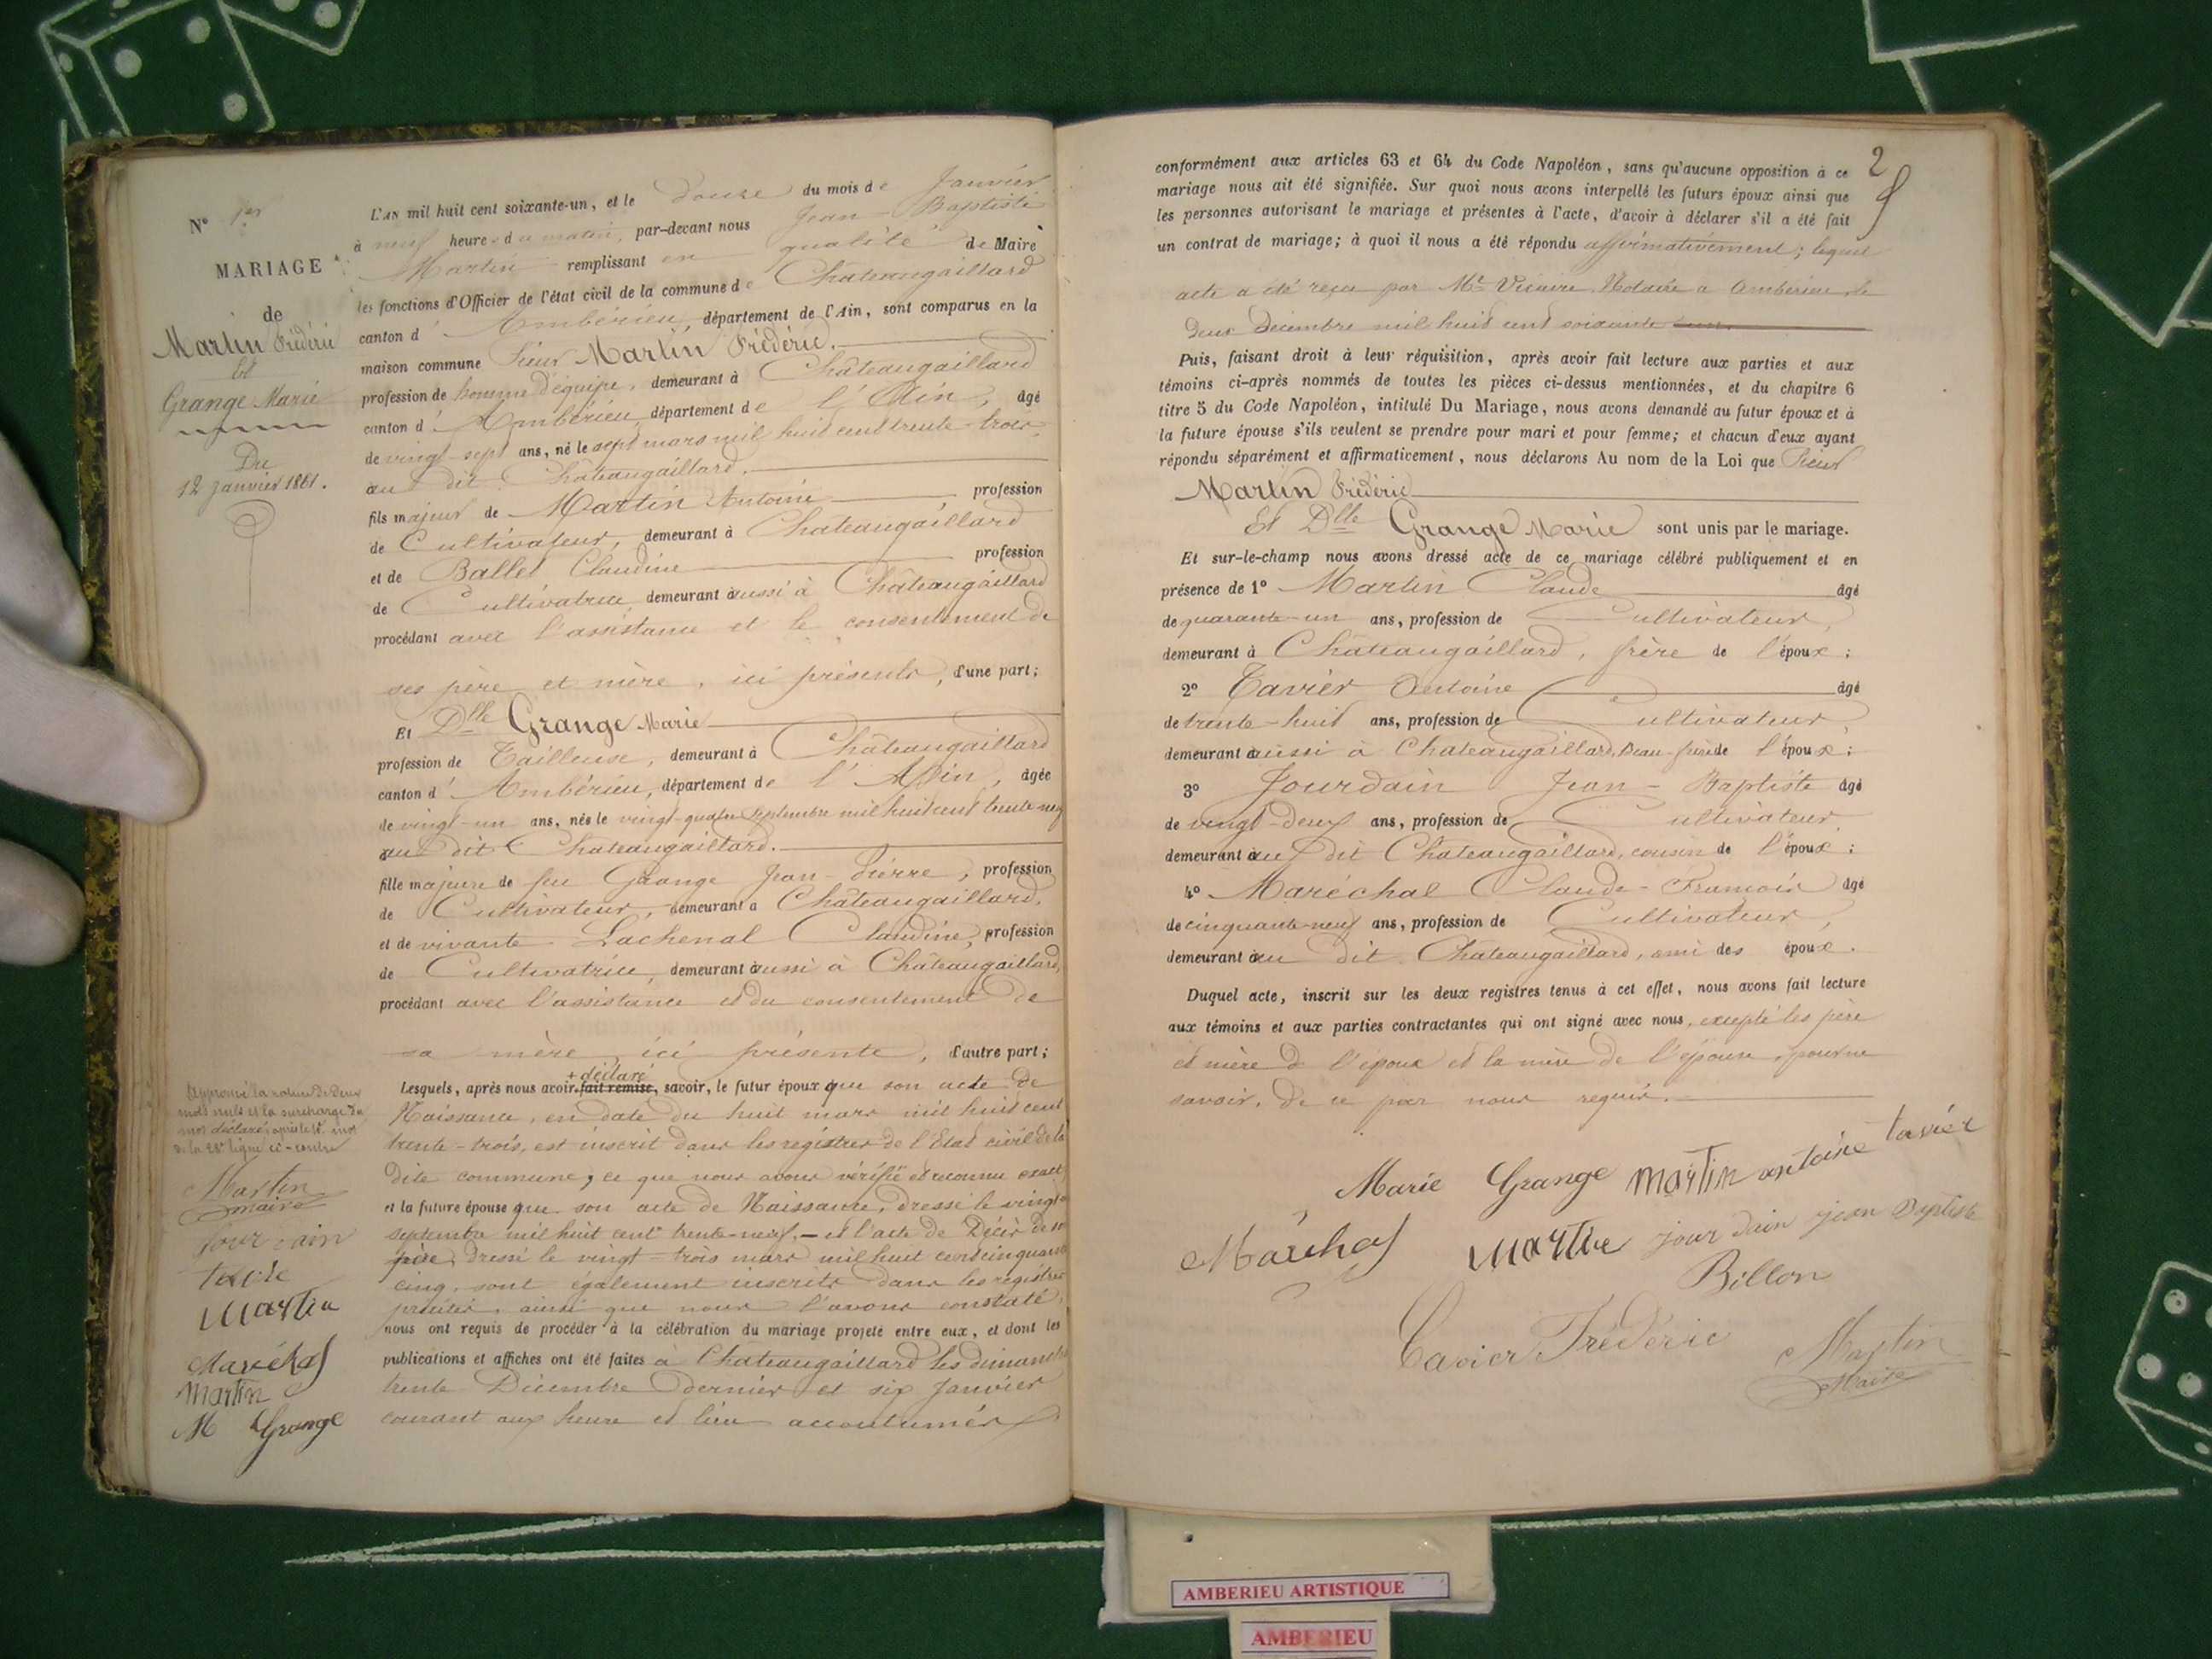 N° 1er
MARIAGE
de
Martin Frédéric
et
Grange Marie
Du
12 Janvier 1861.
L'AN mil huit cent soixante-un, et le douze du mois de Janvier
à neuf heures du matin, par-devant nous Jean-Baptiste
Martin remplissant en qualité de Maire
les fonctions d'Officier de l'état civil de la commune de Chateaugaillard
canton d'Ambérieu, département de l'Ain, sont comparus en la
maison commune Sieur Martin Frédéric.
profession de homme d'équipe, demeurant à Châteaugaillard
canton d'Ambérieu, département de l'Ain, âgé
de vingt-sept ans, né le sept mars mil huit cent trente-trois
au dit Chateaugaillard.
fils majeur de Martin Antoine profession
de Cultivateur, demeurant à Chateaugaillard
et de Ballet Claudine profession
de Cultivatrice demeurant aussi à Châteaugaillard
procédant avec l'assistance et le consentement de
ses père et mère, ici présents, d'une part;
Et Dlle Grange Marie
profession de Tailleuse, demeurant à Châteaugaillard
canton d'Ambérieu, département de l'Ain, âgée
de vingt-un ans, née le vingt-quatre Septembre mil huit cent trente-neuf
au dit Chateaugaillard.
fille majeure de feu Grange Jean-Pierre, profession
de Cultivateur, demeurant à Châteaugaillard,
et de vivante Lachenal Claudine, profession
de Cultivatrice, demeurant aussi à Châteaugaillard,
procédant avec l'assistance et du consentement de
sa mère ici présente, d'autre part;
+ déclaré
Lesquels, après nous avoir fait remise, savoir, le futur époux que son acte de
Naissance, en date du huit mars mil huit cent
trente-trois, est inscrit dans les registres de l'Etat civil de la
dite commune, ce que nous avons vérifié et reconnu exact
et la future épouse que son acte de Naissance, dressé le vingt
septembre mil huit cent trente-neuf, - et l'acte de Décès de
père, dressé le vingt-trois mars mil huit cent cinquante
cinq, sont également inscrits dans les registres
précités, ainsi que nous l'avons constaté;
nous ont requis de procéder à la célébration du mariage projeté entre eux, et dont les
publications et affiches ont été faites à Chateaugaillard les dimanches
trente Décembre dernier et six Janvier
courant aux heure et lieu accoutumés
Approuvé la rature de deux
mots nuls et la surcharge du
mot déclaré, après le mot
de la 25e ligne ci-contre
Martin
maire
Jourdain
tavie
Martin
Maréchal
Martin
M Grange
2
conformément aux articles 63 et 64 du Code Napoléon, sans qu'aucune opposition à ce
mariage nous ait été signifiée. Sur quoi nous avons interpellé les futurs époux ainsi que
les personnes autorisant le mariage et présentes à l'acte, d'avoir à déclarer s'il a été fait
un contrat de mariage; à quoi il nous a été répondu affirmativement; lequel
acte a été reçu par Me Notaire à Ambérieu, le
deux Décembre mil huit cent soixante
Puis, faisant droit à leur réquisition, après avoir fait lecture aux parties et aux
témoins ci-après nommés de toutes les pièces ci-dessus mentionnées, et du chapitre 6
titre 5 du Code Napoléon, intitulé Du Mariage, nous avons demandé au futur époux et à
la future épouse s'ils veulent se prendre pour mari et pour femme; et chacun d'eux ayant
répondu séparément et affirmativement, nous déclarons Au nom de la Loi que Sieur
Martin Frédéric
Et Dlle Grange Marie sont unis par le mariage.
Et sur-le-champ nous avons dressé acte de ce mariage célébré publiquement et en
présence de 1° Martin Claude âgé
de quarante-un ans, profession de Cultivateur,
demeurant à Châteaugaillard, frère de l'époux;
2° Tavier Antoine âgé
de trente-huit ans, profession de Cultivateur
demeurant aussi à Chateaugaillard, beau-frère de l'époux;
3° Jourdain Jean-Baptiste âgé
de vingt-deux ans, profession de Cultivateur
demeurant au dit Chateaugaillard, cousin de l'époux;
4° Maréchal Claude-François âgé
de cinquante-neuf ans, profession de Cultivateur,
demeurant au dit Chateaugaillard, ami des époux.
Duquel acte, inscrit sur les deux registres tenus à cet effet, nous avons fait lecture
aux témoins et aux parties contractantes qui ont signé avec nous, excepté les père
et mère de l'époux et la mère de l'épouse, pour ne
savoir, de ce par nous requis.
Marie Grange Martin antoine tavier
Maréchal Martin jour dain jean Baptiste
Billon
Tavier Frédéric
Martin
Maire
AMBERIEU ARTISTIQUE
AMBERIEU